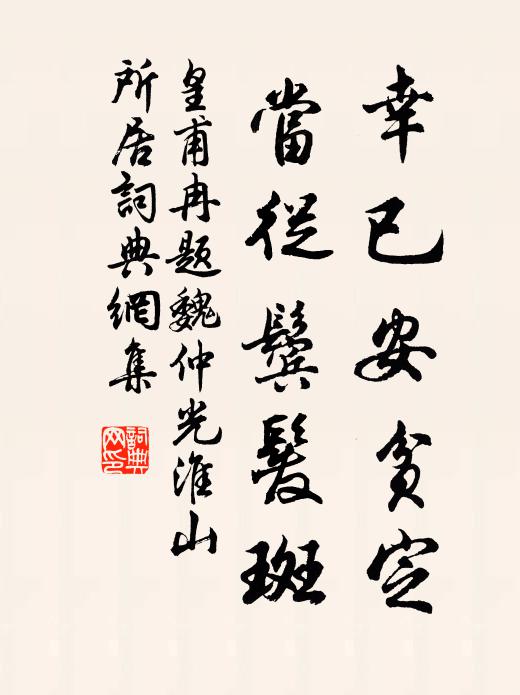 幸已安貧定
當從鬢髮斑
皇甫冉題魏仲光淮山
所居詞典網集
詞典
网印